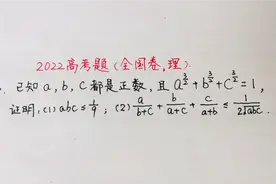 2022高考题（全国卷,理）
. 已知 a, b, c 都是正数, 且 a^{3/2}+b^{3/2}+c^{3/2}=1,
证明, (1) abc ≤ 1/9 ; (2) a/(b+c) + b/(a+c) + c/(a+b) ≤ 1/(2√abc) .